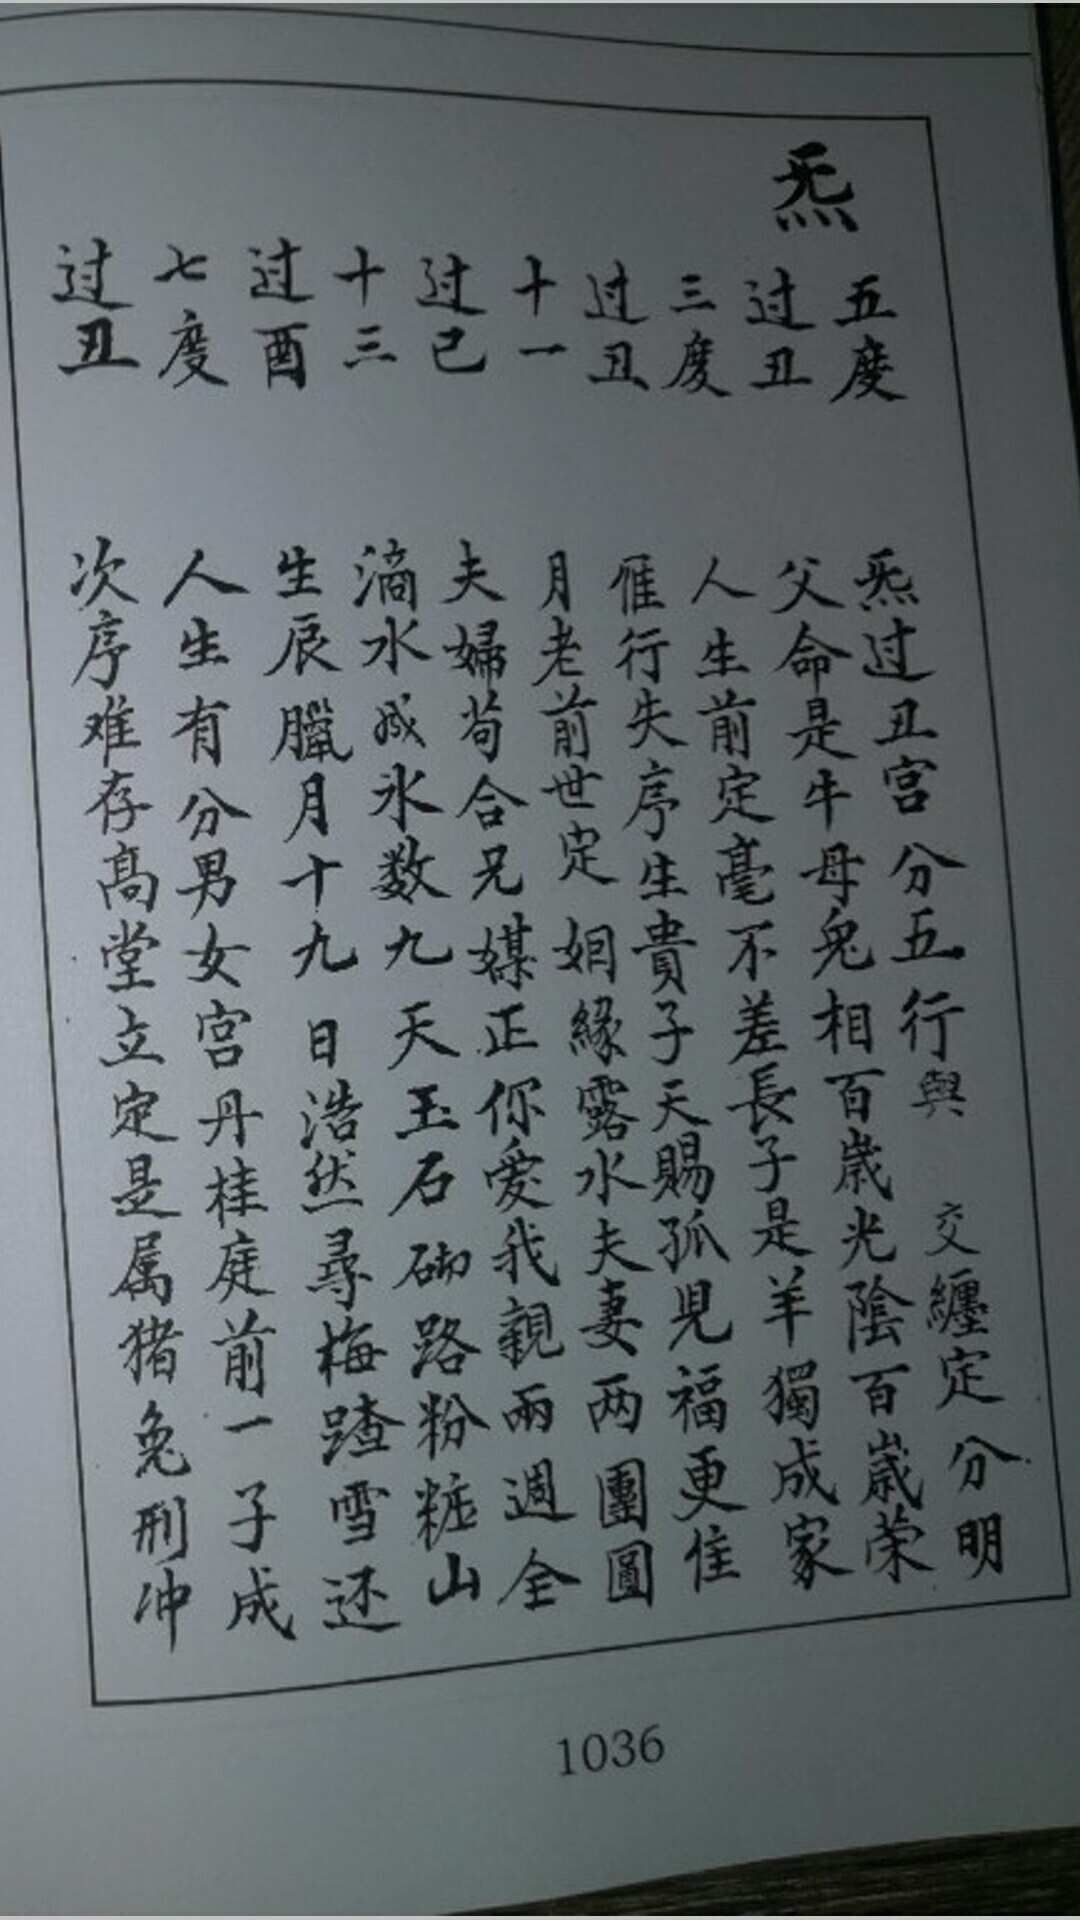 炁
五度
过丑
三度
过丑
十一
过己
十三
过酉
七度
过丑
炁过丑宫分五行與 交纏定分明
父命是牛母兔相百歲光陰百歲荣
人生前定毫不差長子是羊獨成家
雁行失序生貴子天賜孤児福更佳
月老前世定姻緣露水夫妻两團圓
夫婦苟合兄媒正你愛我親兩週全
滴水成氷数九天玉石砌路粉粧山
生辰臘月十九日浩然尋梅踏雪还
人生有分男女宫丹桂庭前一子成
次序难存髙堂立定是属猪兔刑冲
1036